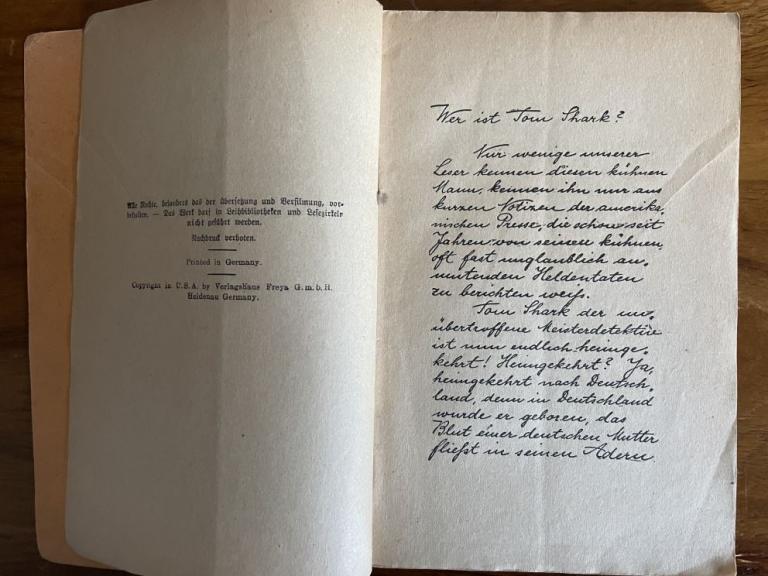 Alle Rechte, besonders das der Übersetzung und Verfilmung, vor-
behalten. — Das Werk darf in Leihbibliotheken und Lesezirkeln
nicht geführt werden.
Nachdruck verboten.
Printed in Germany.
Copyright in U.S.A. by Verlagshaus Freya G. m. b. H.
Heidenau Germany.
Wer ist Tom Shark?
Nur wenige unserer
Leser kennen diesen kühnen
Mann, kennen ihn nur aus
kurzen Notizen der amerika-
nischen Presse, die schon seit
Jahren von seinen kühnen,
oft fast unglaublich an-
mutenden Heldentaten
zu berichten weiß.
Tom Shark der un-
übertroffene Meisterdetektiv
ist nun endlich heimge-
kehrt! Heimgekehrt? Ja,
heimgekehrt nach Deutsch-
land, denn in Deutschland
wurde er geboren, das
Blut einer deutschen Mutter
fließt in seinen Adern